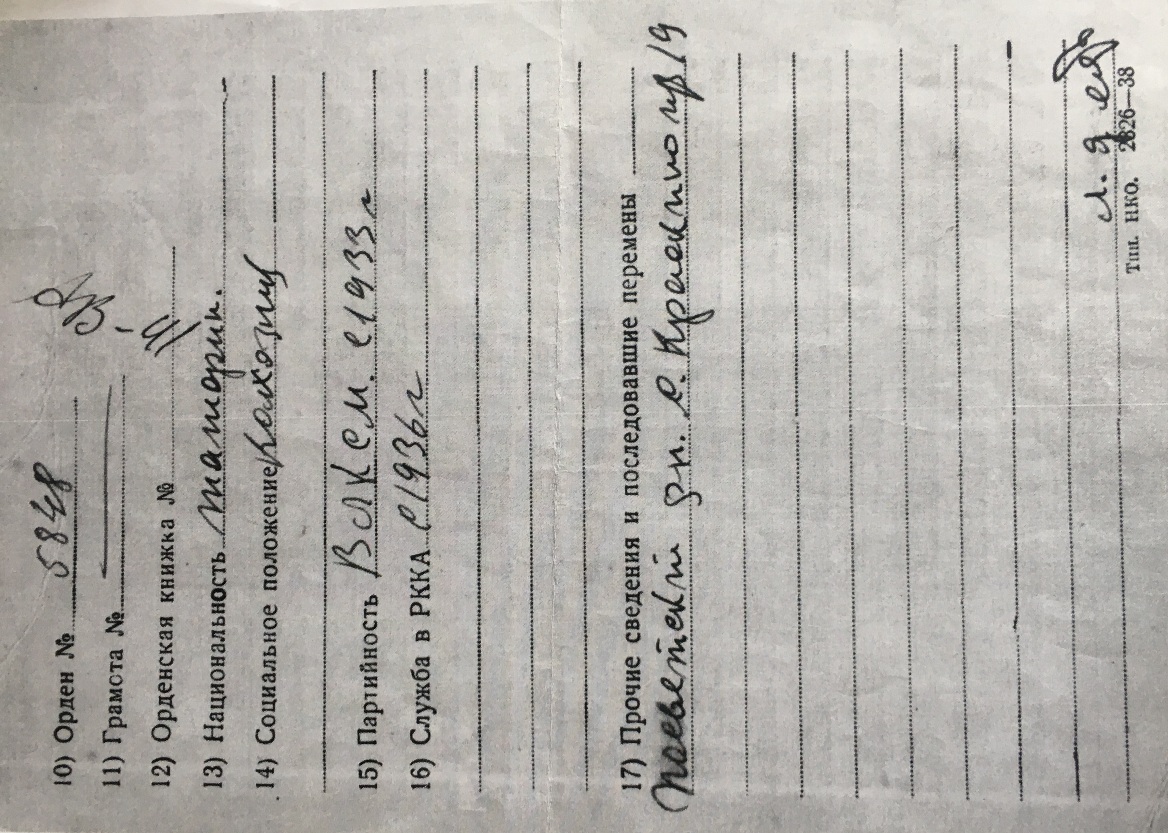 10) Орден № 5848
11) Грамота №
12) Орденская книжка №
13) Национальность татарин.
14) Социальное положение колхозник
15) Партийность ВЛКСМ. с 1933 г
16) Служба в РККА с 1936 г
17) Прочие сведения и последовавшие перемены
с.
Л. д
Тип. НКО. 2826—38